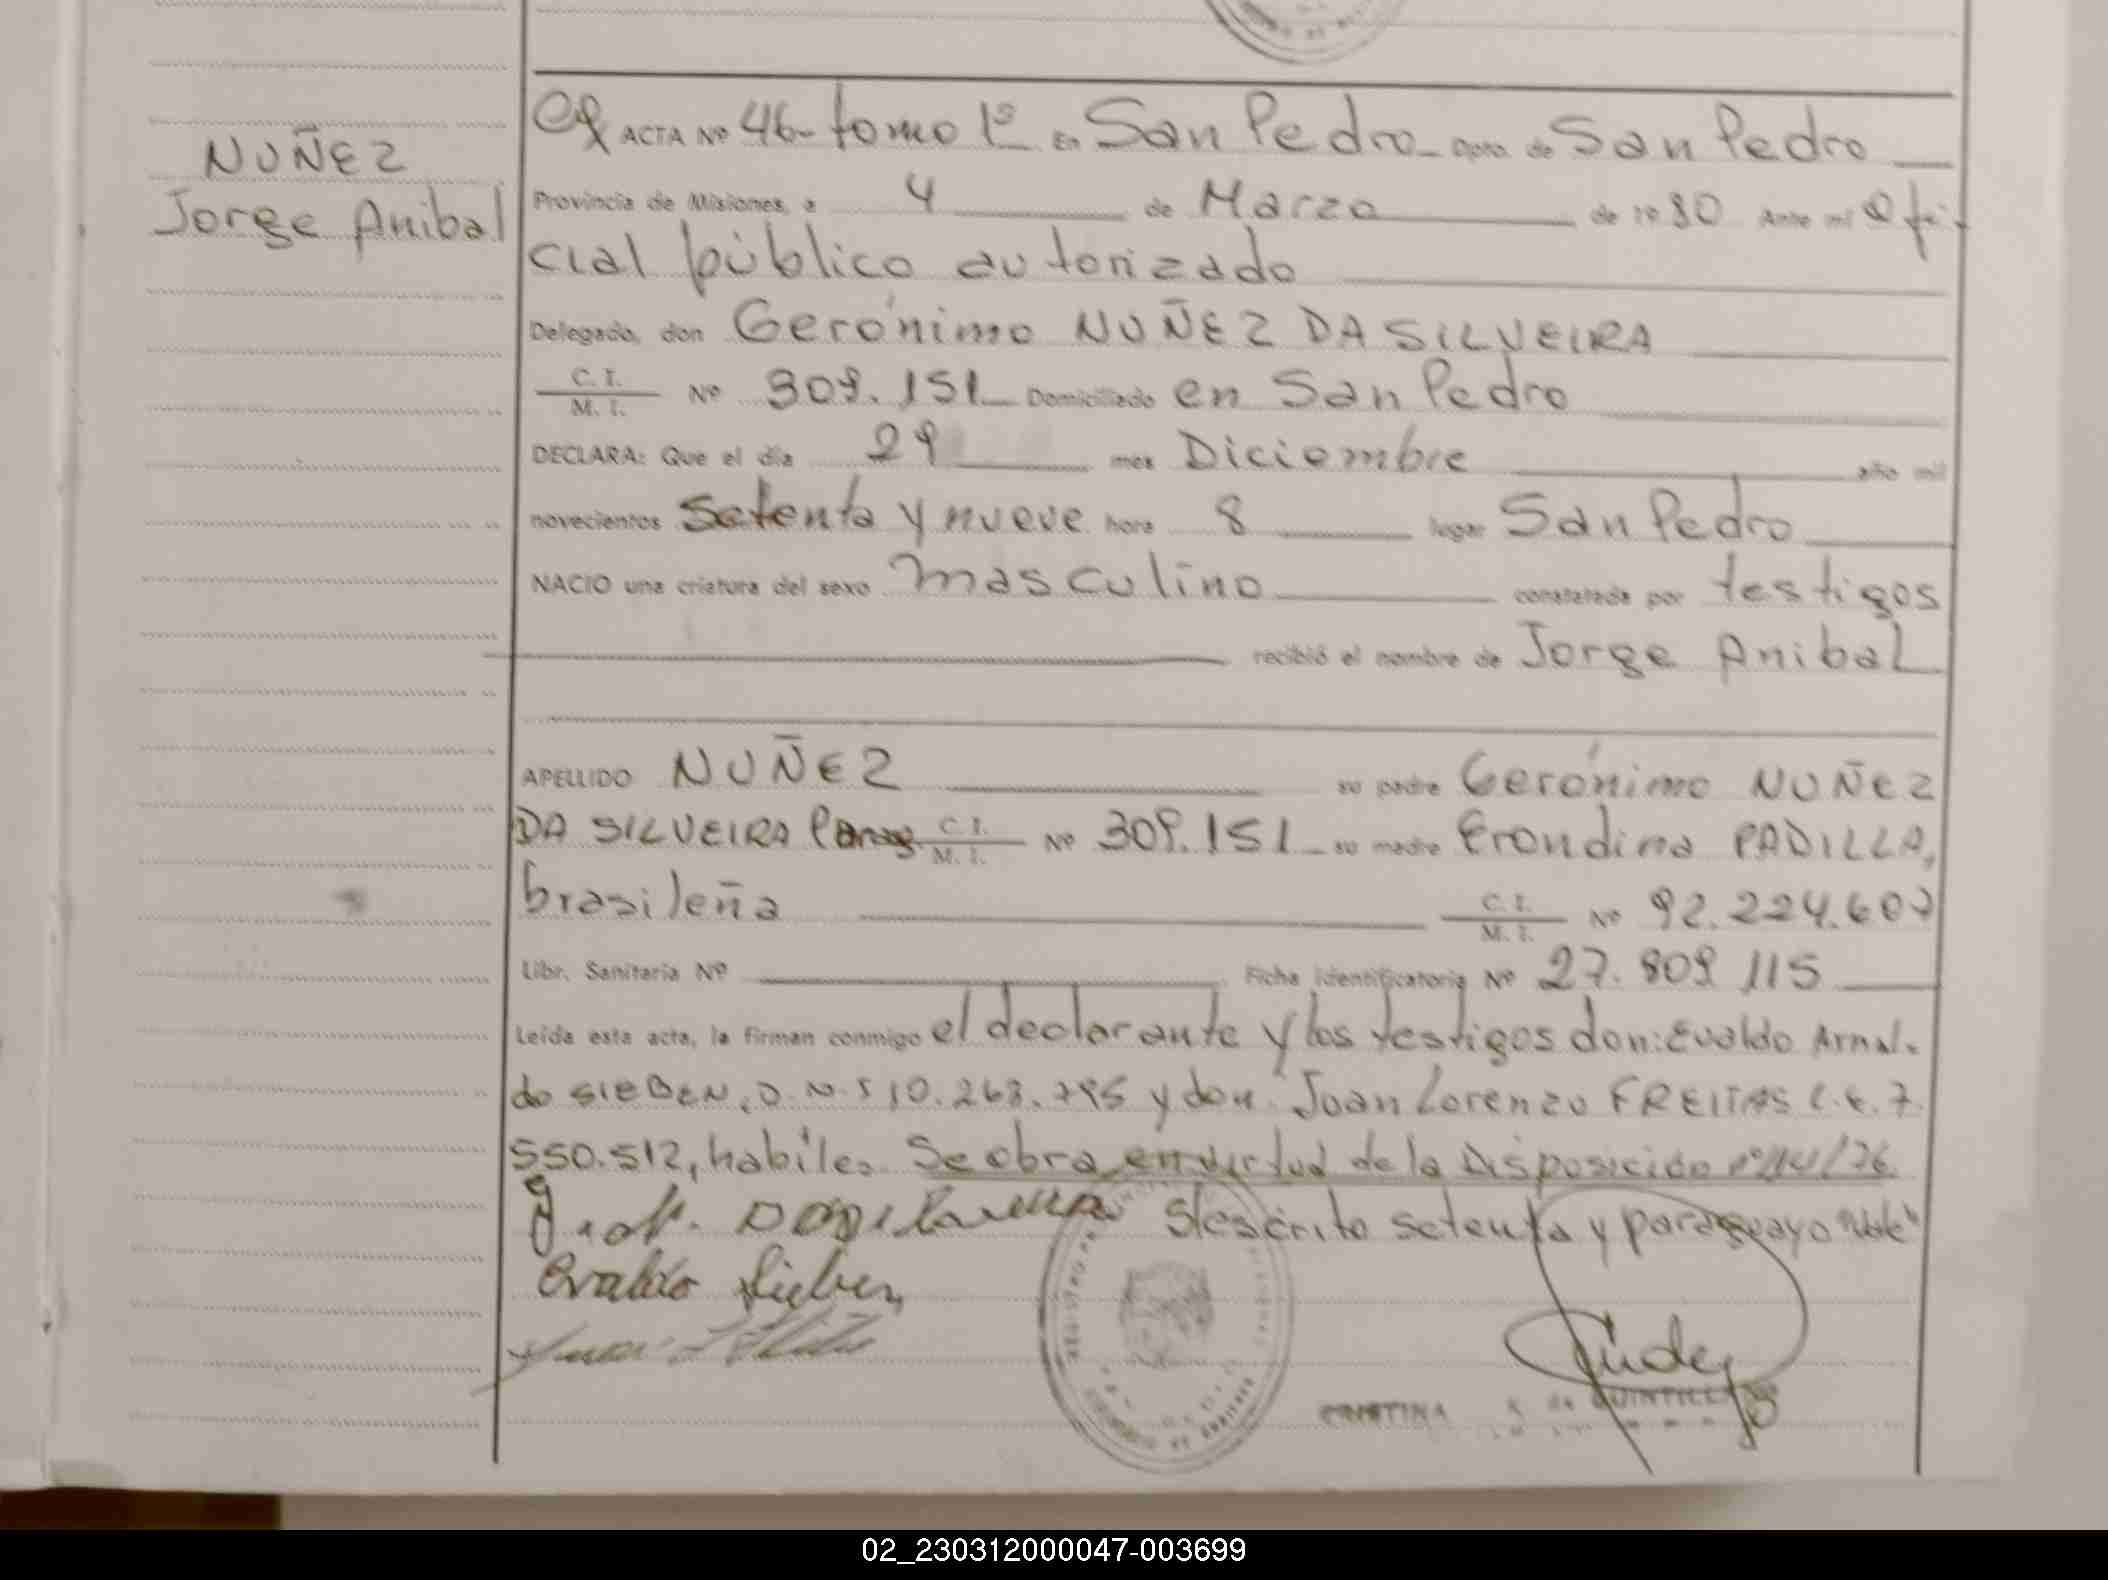 NUÑEZ
Jorge Anibal
ACTA Nº 46- tomo 1º En San Pedro Dpto. de San Pedro
Provincia de Misiones, a 4 de Marzo de 1980 Ante mi Ofi-
cial público autorizado
Delegado, don Gerónimo NUÑEZ DA SILVEIRA
C. I.
M. I. Nº 309.151 Domiciliado en San Pedro
DECLARA: Que el día 29 mes Diciembre año mil
novecientos setenta y nueve hora 8 lugar San Pedro
NACIO una criatura del sexo masculino constatada por testigos
recibió el nombre de Jorge Anibal
APELLIDO NUÑEZ su padre Gerónimo NUÑEZ
DA SILVEIRA C. I.
M. I. Nº 309.151 su madre Erondina PADILLA,
brasileña C. I.
M. I. Nº 92.224.607
Libr. Sanitaria Nº Ficha identificatoria Nº 27.809 115
Leída esta acta, la firman conmigo el declarante y los testigos don: Evaldo Arnal-
do SIEBEN, D.N.I 10.268.795 y don Juan Lorenzo FREITAS L.E. 7.
550.512, habiles. Se obra en virtud de la Disposición nº 14/76
S/escrito setenta y paraguayo Vale"
Evaldo Sieben
CRISTINA
02_230312000047-003699